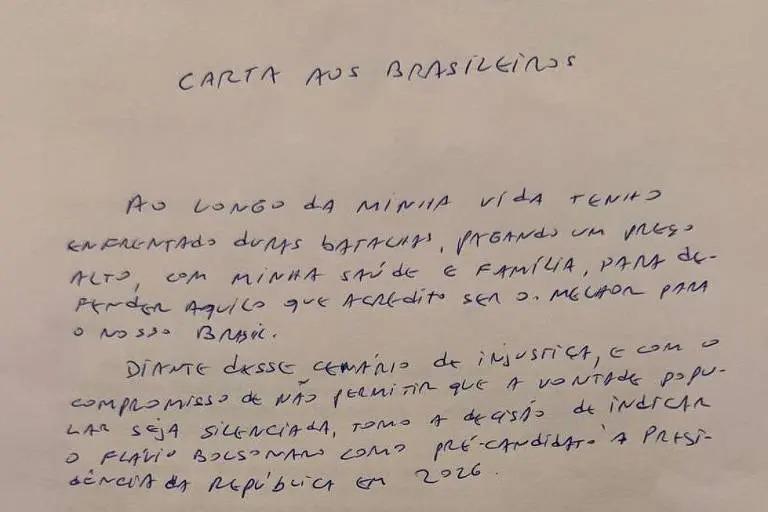 CARTA AOS BRASILEIROS
AO LONGO DA MINHA VIDA TENHO
ENFRENTADO DURAS BATALHAS, PAGANDO UM PREÇO
ALTO, COM MINHA SAÚDE E FAMÍLIA, PARA DE-
FENDER AQUILO QUE ACREDITO SER O MELHOR PARA
O NOSSO BRASIL.
DIANTE DESSE CENÁRIO DE INJUSTIÇA, E COM O
COMPROMISSO DE NÃO PERMITIR QUE A VONTADE POPU-
LAR SEJA SILENCIADA, TOMO A DECISÃO DE INDICAR
O FLÁVIO BOLSONARO COMO PRÉ-CANDIDATO À PRESI-
DÊNCIA DA REPÚBLICA EM 2026.